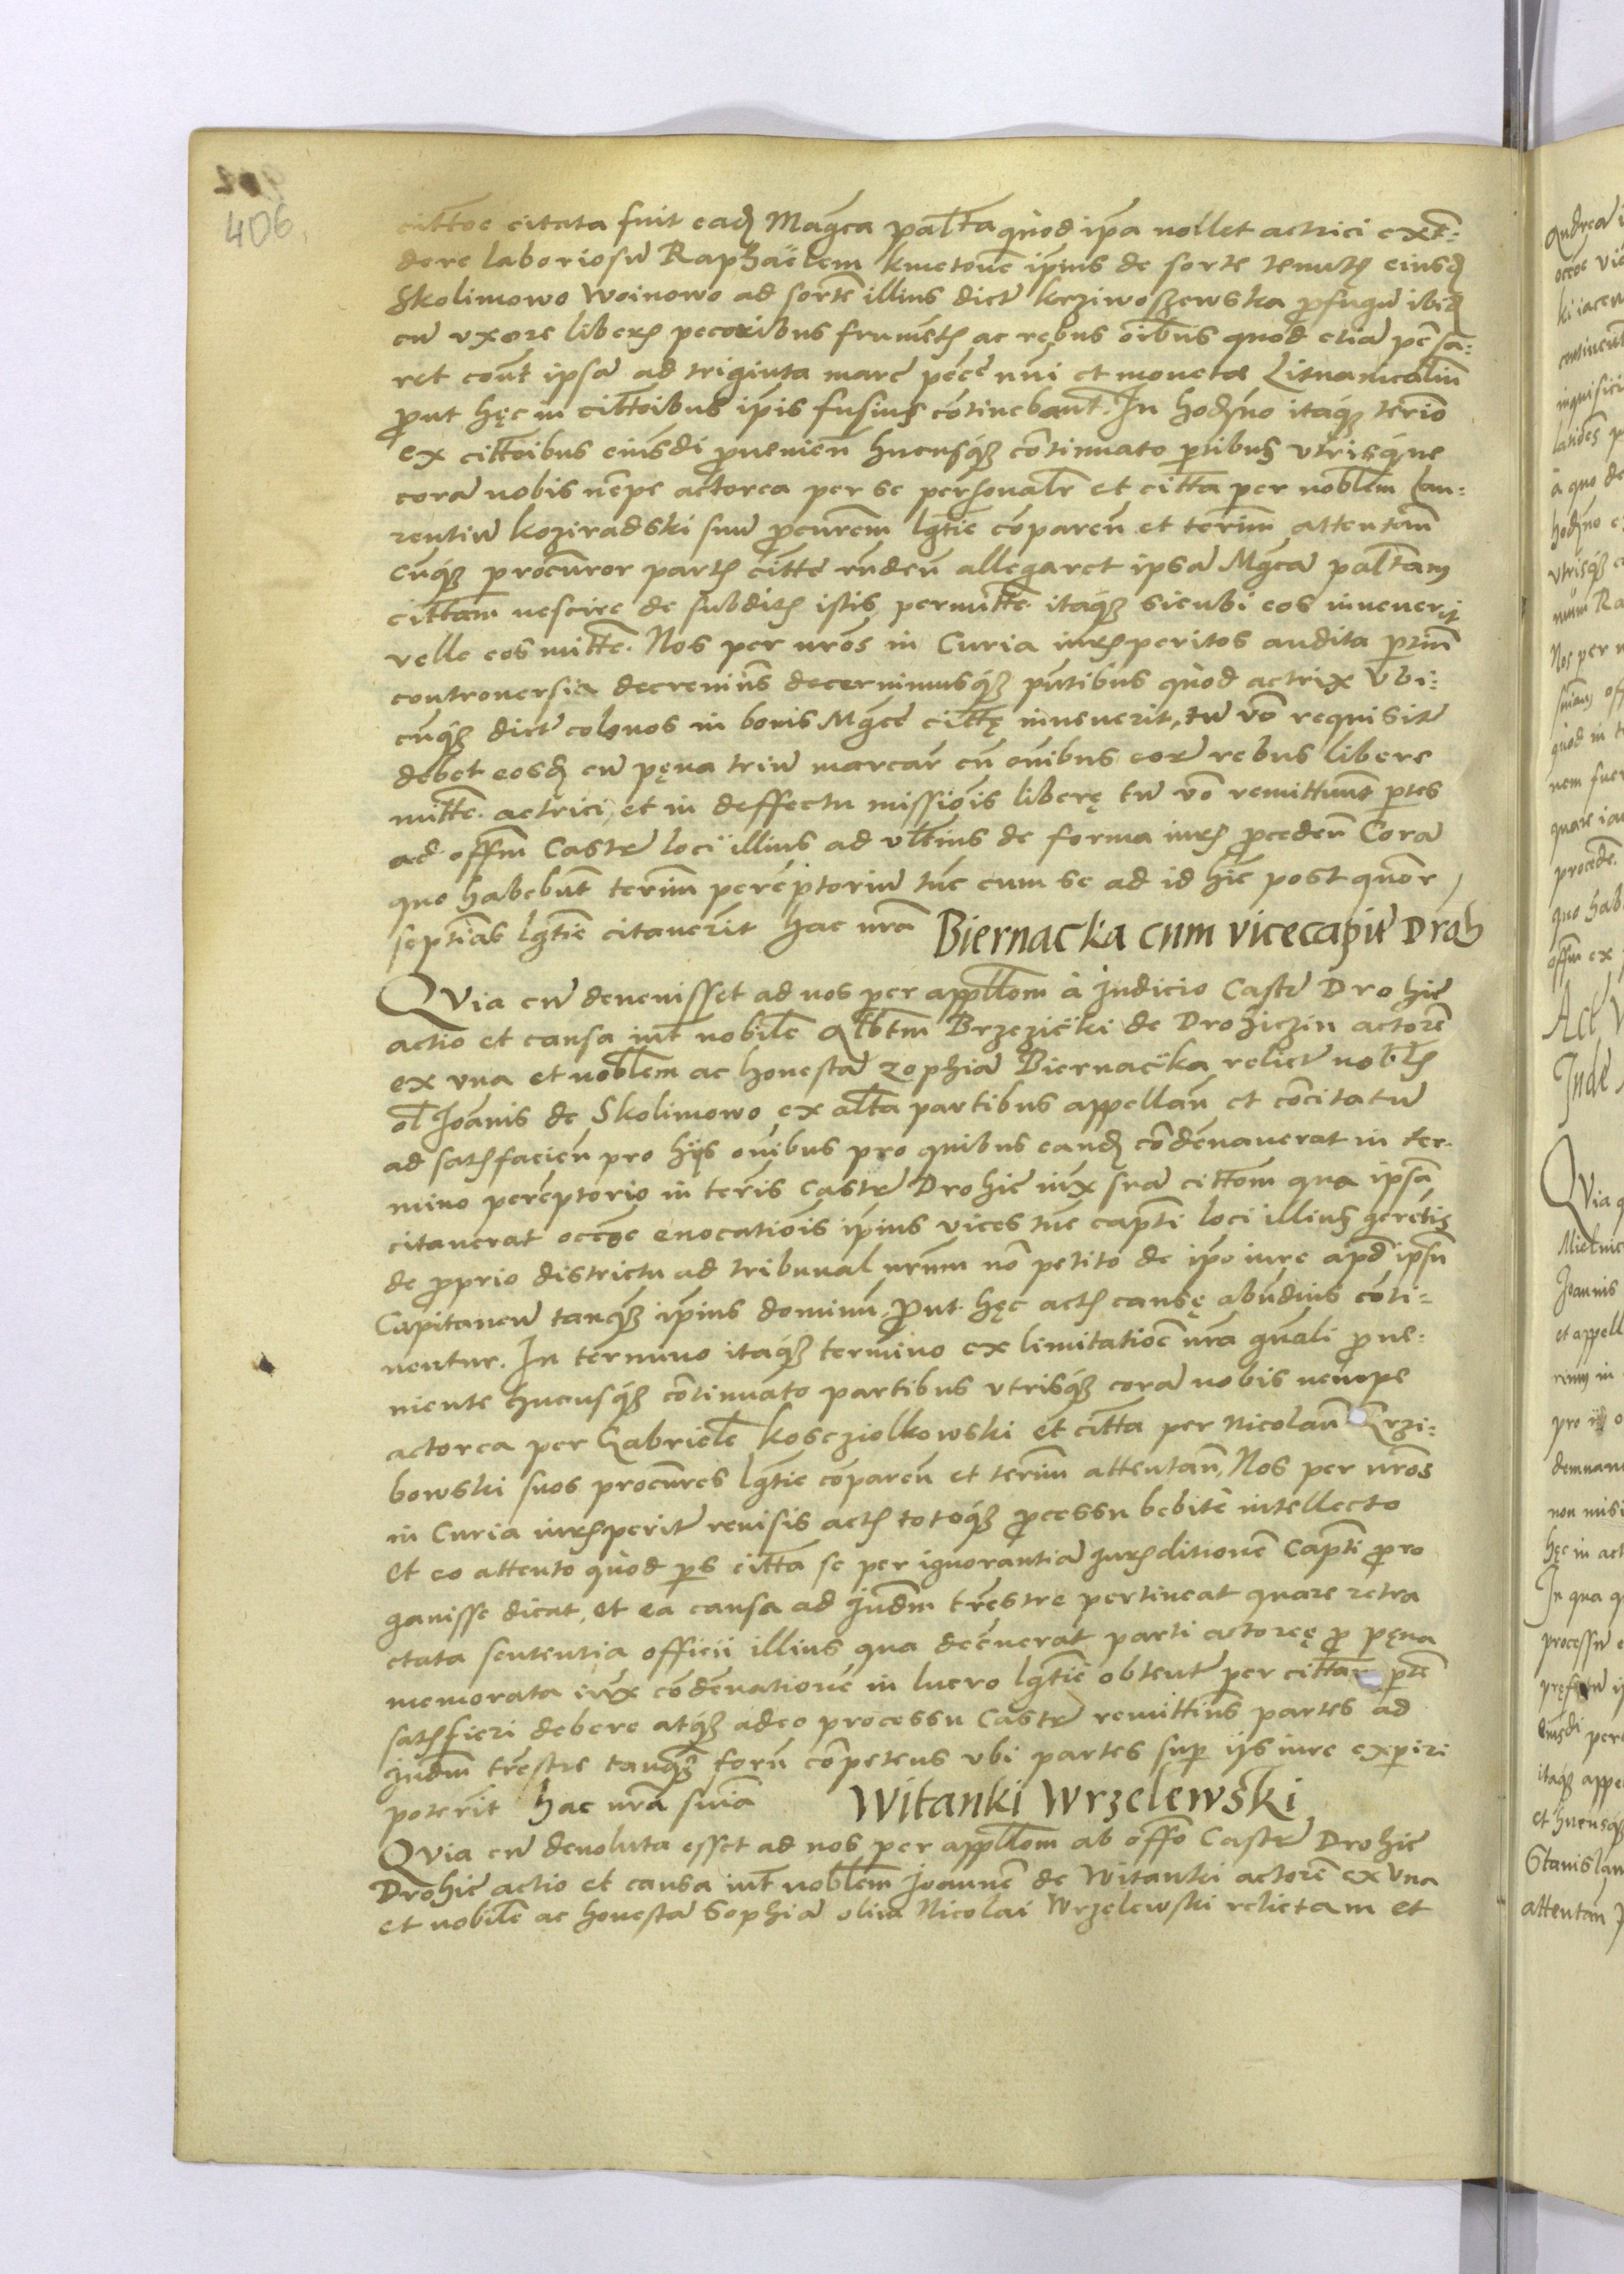 406
cittoe citata fuit ead Magca palta quod ipa nollet actrici exte:
dere laboriosu Raphaelem kmetone ipius de sorte tenuts eiusd
Skolimowo Woinowo ad sorte illius dict krziwoszewska profugu ibid
cu uxore libers pecoribus frumets ac rebus oibus quod etia pesa:
ret cont ipsa ad triginta marc pece nui et monetæ Lituanicaliu
prout hęc in cittoibus ipis fusius cotinebant. In hodno itaq terio
ex cittoibus eiusdi prouenien hucusq continuato ptibus utrisque
cora nobis nepe actorea per se personalr et citta per noblem Lau:
rentiu koziradski suu procurem lgtie coparen et terim attentan
cuq procuror parts citte rnden allegaret ipsa Mgca paltam
cittam nescire de subdits istis permitte itaq sicubi eos inuenerit
velle eos mitte. Nos per nros in Curia iursperitos audita ptium
controuersia decreuius decernimusq pntibus quod actrix Ubi:
cuq dict colonos in bonis Mgce cittę inuenerit, tu vo requisit
debet eosd cu pęna triu marcar cu omibus eor rebus libere
mitte actrici, et in deffectu missiois liberę tu vo remittunt ptes
ad offm Castr loci illius ad ultius de forma iurs proceden Cora
quo habebut terim pereptoriu tuc cum se ad id hic post quor
septias lgtie citauerit hac nra Biernacka cum vicecapit Droh
Quia cu deuenisset ad nos per appllom à Judicio Castr Drohic
actio et causa int nobile Albtm Brzezicki de Drohiczin actore
ex una et noblem ac honesta Zophia Biernacka relict nobls
ol Joanis de Skolimowo ex alta partibus appellan et concitatu
ad satsfacien pro hijs omibus pro quibus eand condenauerat in ter-
mino pereptorio in teris Castr Drohic iux sua cittom qua ipsa
citauerat occoe euocatiois ipius vices tuc capti loci illius geretis
de proprio districtu ad tribunal nrum no petito de ipo iure apd ipsu
Capitaneu tanq ipius dominu, Prout hęc acts causę abudius coti-
nentur. In termino itaq termino ex limitatioe nra gnali proue:
niente hucusq continuato partibus utrisq cora nobis nempe
actorea per Gabriele koscziolkowski et citta per Nicolau Grzi:
bowski suos procures lgtie coparen et terim attentan, Nos per nros
in Curia iursperit reuisis acts totoq processu bebite intellecto
Et eo attento quod ps citta se per ignorantia jursditione Capti proro
gauisse dicat, et ea causa ad judm trestre pertineat quare retra
ctata sententia officii illius qua decreuerat parti actoreę pro pęna
memorata iux condenatione in lucro lgtie obtent per cittam pte
satsfieri debere atq adeo processu Castr remittius partes ad
judm trestre tanq foru copetens ubi partes sup ijs iure experiri
poterit hac nra suia Witanki Wrzelewski
Quia cu deuoluta esset ad nos per appllom ab offo Castr Drohic
Drohic actio et causa int noblem Joanne de Witanki actore ex una
et nobile ac honesta Sophia olim Nicolai Wrzelewski relictam et